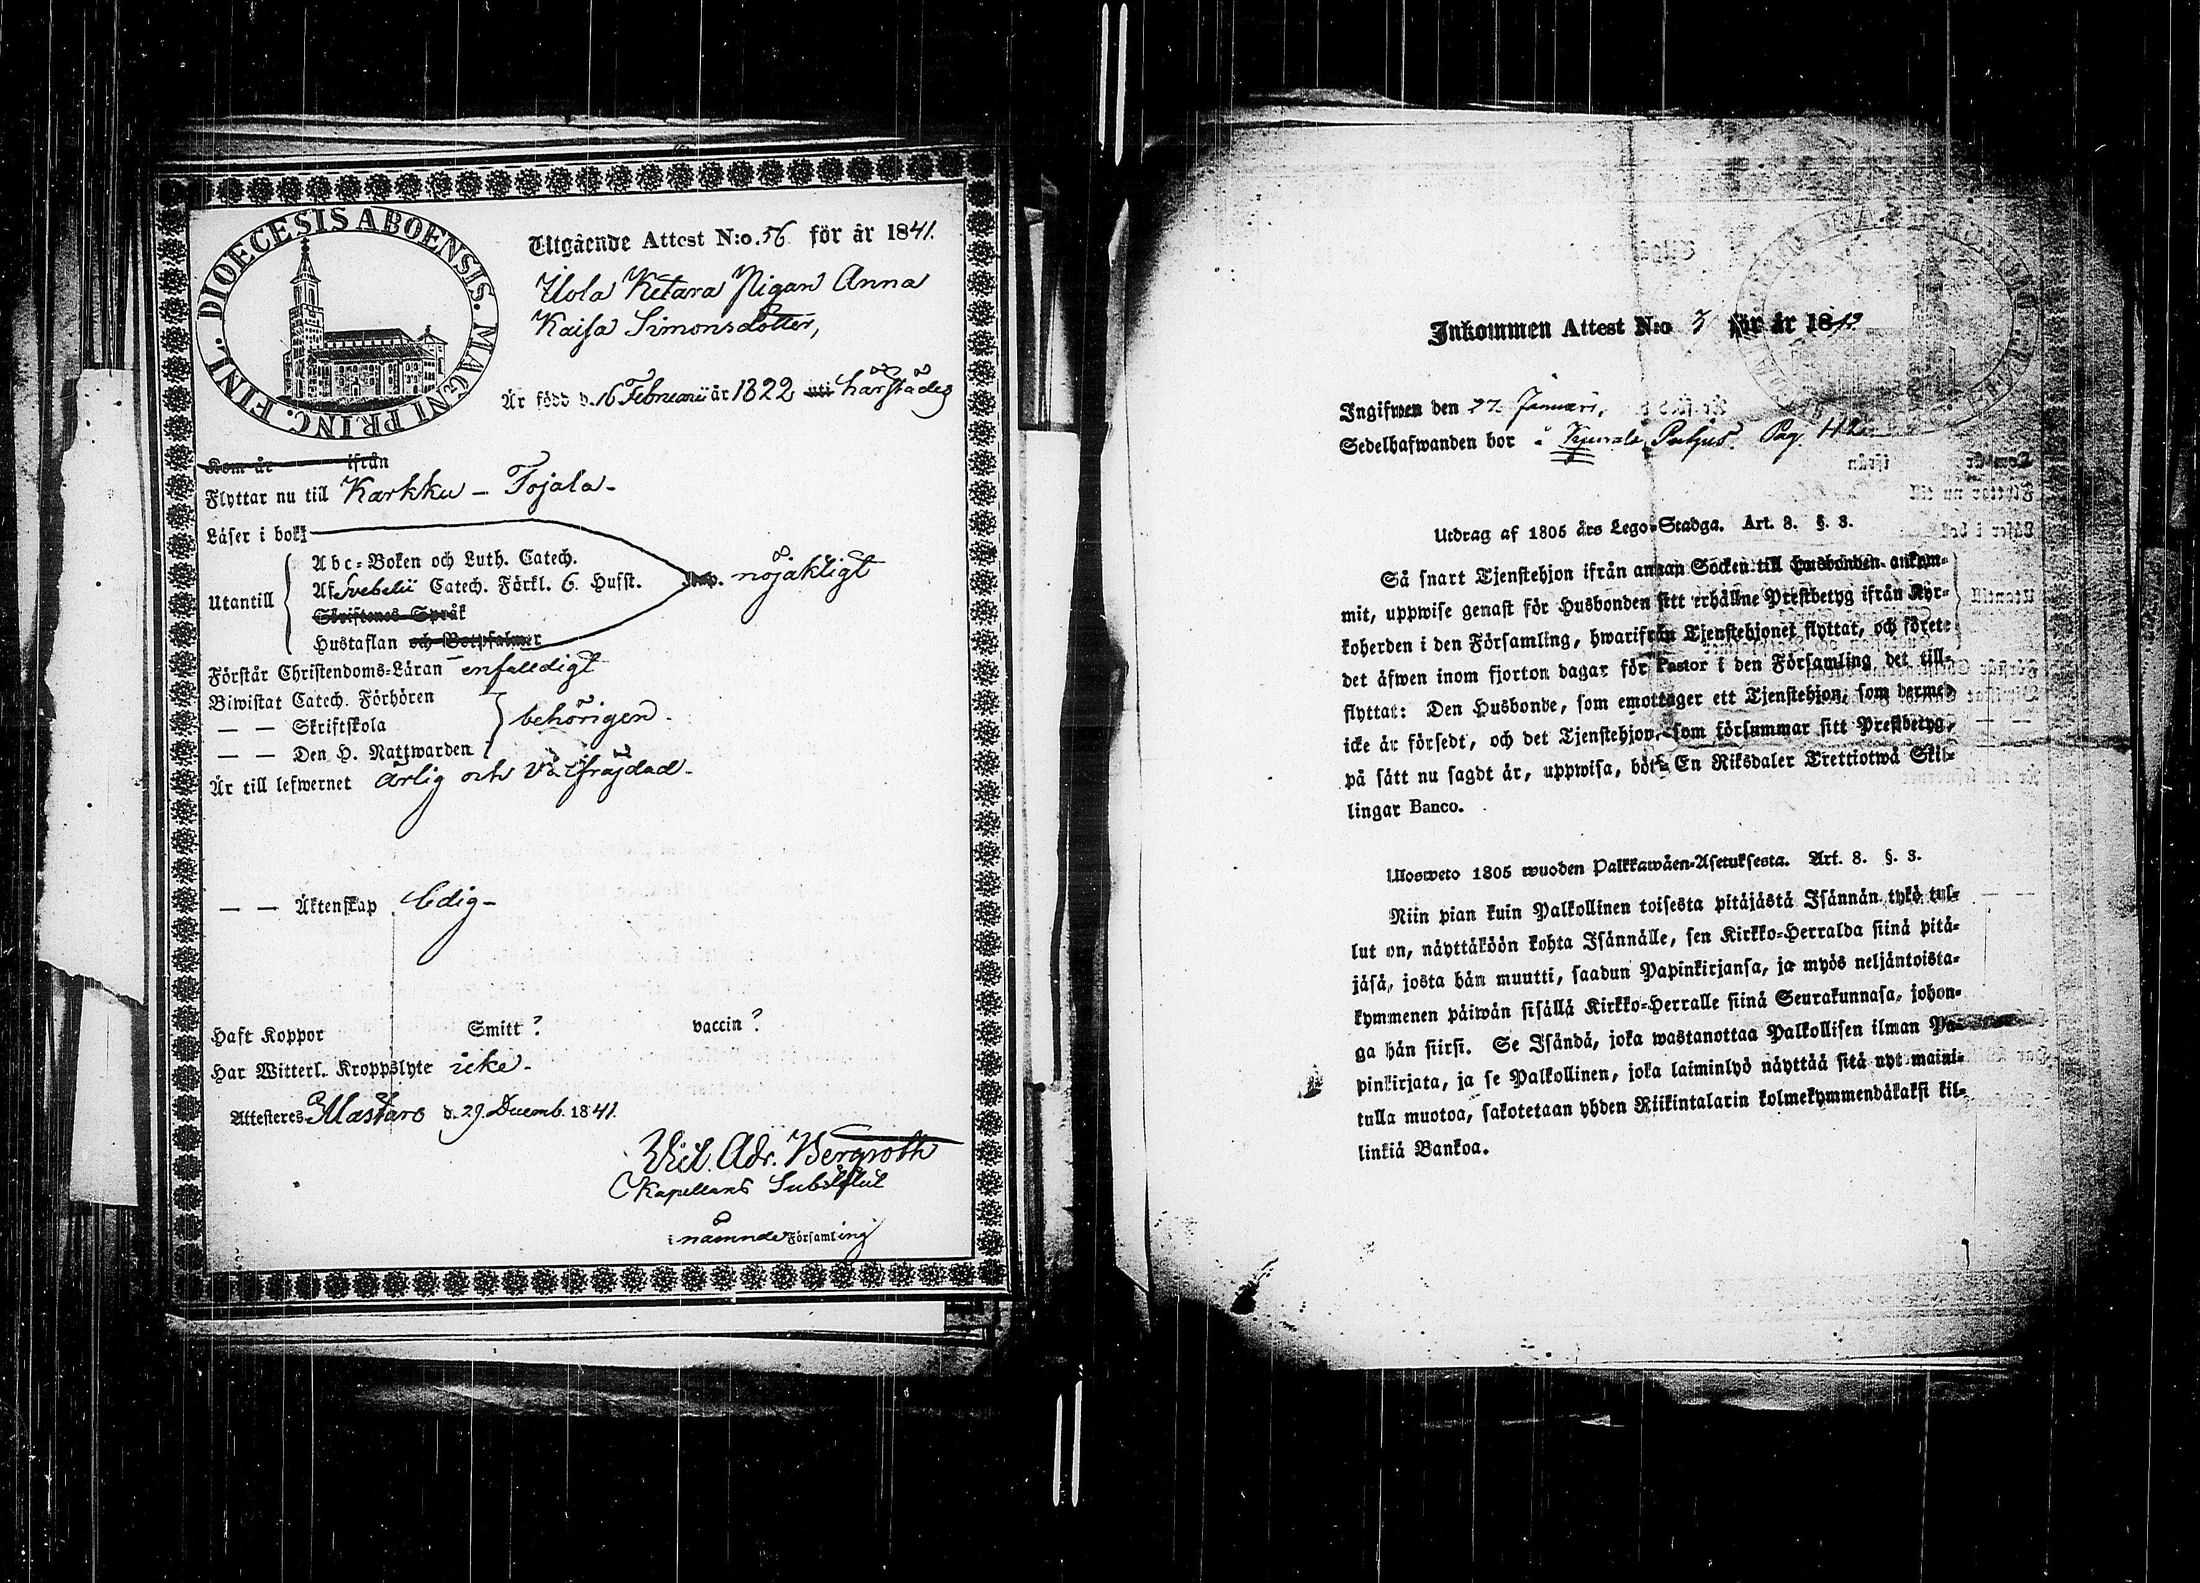 DIOECESIS ABOENSIS. MAGNI PRINC. FINL.
Utgående Attest N:o. 56 för år 1841.
Uola Ketara Pigan Anna
Kaisa Simonsdotter,
Är född d. 16 Februarii år 1822 uti härstädes
Kom år ifrån
Flyttar nu till Karkku – Tojala –
Läser i bok
Utantill
Abc-Boken och Luth. Catech.
Af Svebelii Catech. Förkl. 6. Hufst.
nöjaktigt
Skriftenes Språk
Hustaflan och Botpsalmer
Förstår Christendoms-Läran enfalldigt
Biwistat Catech. Förhören
— — Skriftskola
behörigen –
— — Den H. Nattwarden
Är till lefwernet ärlig och välfräjdad –
— — Äktenskap ledig –
Haft Koppor Smitt? vaccin?
Har Witterl. Kroppslyte icke –
Attesteres Mastaro d. 29 Decemb. 1841.
Vict. Adr. Bergroth
Kapellans Substitut
i nämnde Församling
Inkommen Attest N:o 3 för år 18
Ingifwen den 27. Januari,
Sedelhafwanden bor å Pag.
Utdrag af 1805 års Lego-Stadga. Art. 8. §. 3.
Så snart Tjenstehjon ifrån annan Socken till Husbonden ankom-
mit, uppwise genast för Husbonden sitt erhållne Prestbetyg ifrån Kyr-
koherden i den Församling, hwarifrån Tjenstehjonet flyttat, och förete
det äfwen inom fjorton dagar för Pastor i den Församling det till-
flyttat: Den Husbonde, som emottager ett Tjenstehjon, som dermed
icke är försedt, och det Tjenstehjon, som försummar sitt Prestbetyg,
på sätt nu sagdt är, uppwisa, böte En Riksdaler Trettiotwå Skil-
lingar Banco.
Ulosweto 1805 wuoden Palkkawäen-Asetuksesta. Art. 8. §. 3.
Niin pian kuin Palkollinen toisesta pitäjästä Isännän tykö tul-
lut on, näyttäköön kohta Isännälle, sen Kirkko-Herralda siinä pitä-
jäsä, josta hän muutti, saadun Papinkirjansa, ja myös neljäntoista-
kymmenen päiwän sisällä Kirkko-Herralle siinä Seurakunnasa, johon-
ga hän siirsi. Se Isändä, joka wastanottaa Palkollisen ilman Pa-
pinkirjata, ja se Palkollinen, joka laiminlyö näyttää sitä nyt maini-
tulla muotoa, sakotetaan yhden Riikintalarin kolmekymmendäkaksi kil-
linkiä Bankoa.